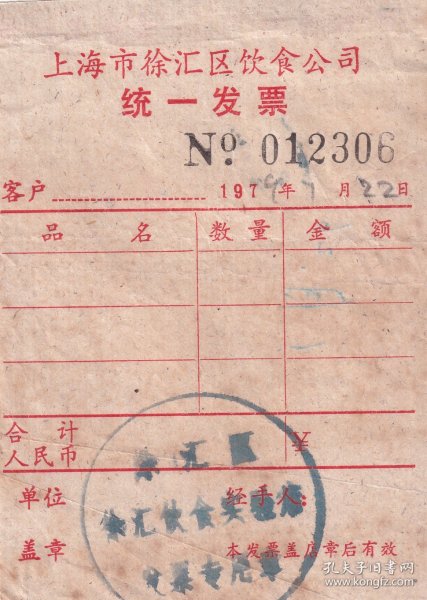 上海市徐汇区饮食公司
统一发票
No. 012306
客户 197 年 月 22日
品名 数量 金额
合计
人民币
徐汇区
徐汇饮食
发票专用章
单位 经手人:
盖章 本发票盖店章后有效
孔夫子旧书网
www.kongfz.com